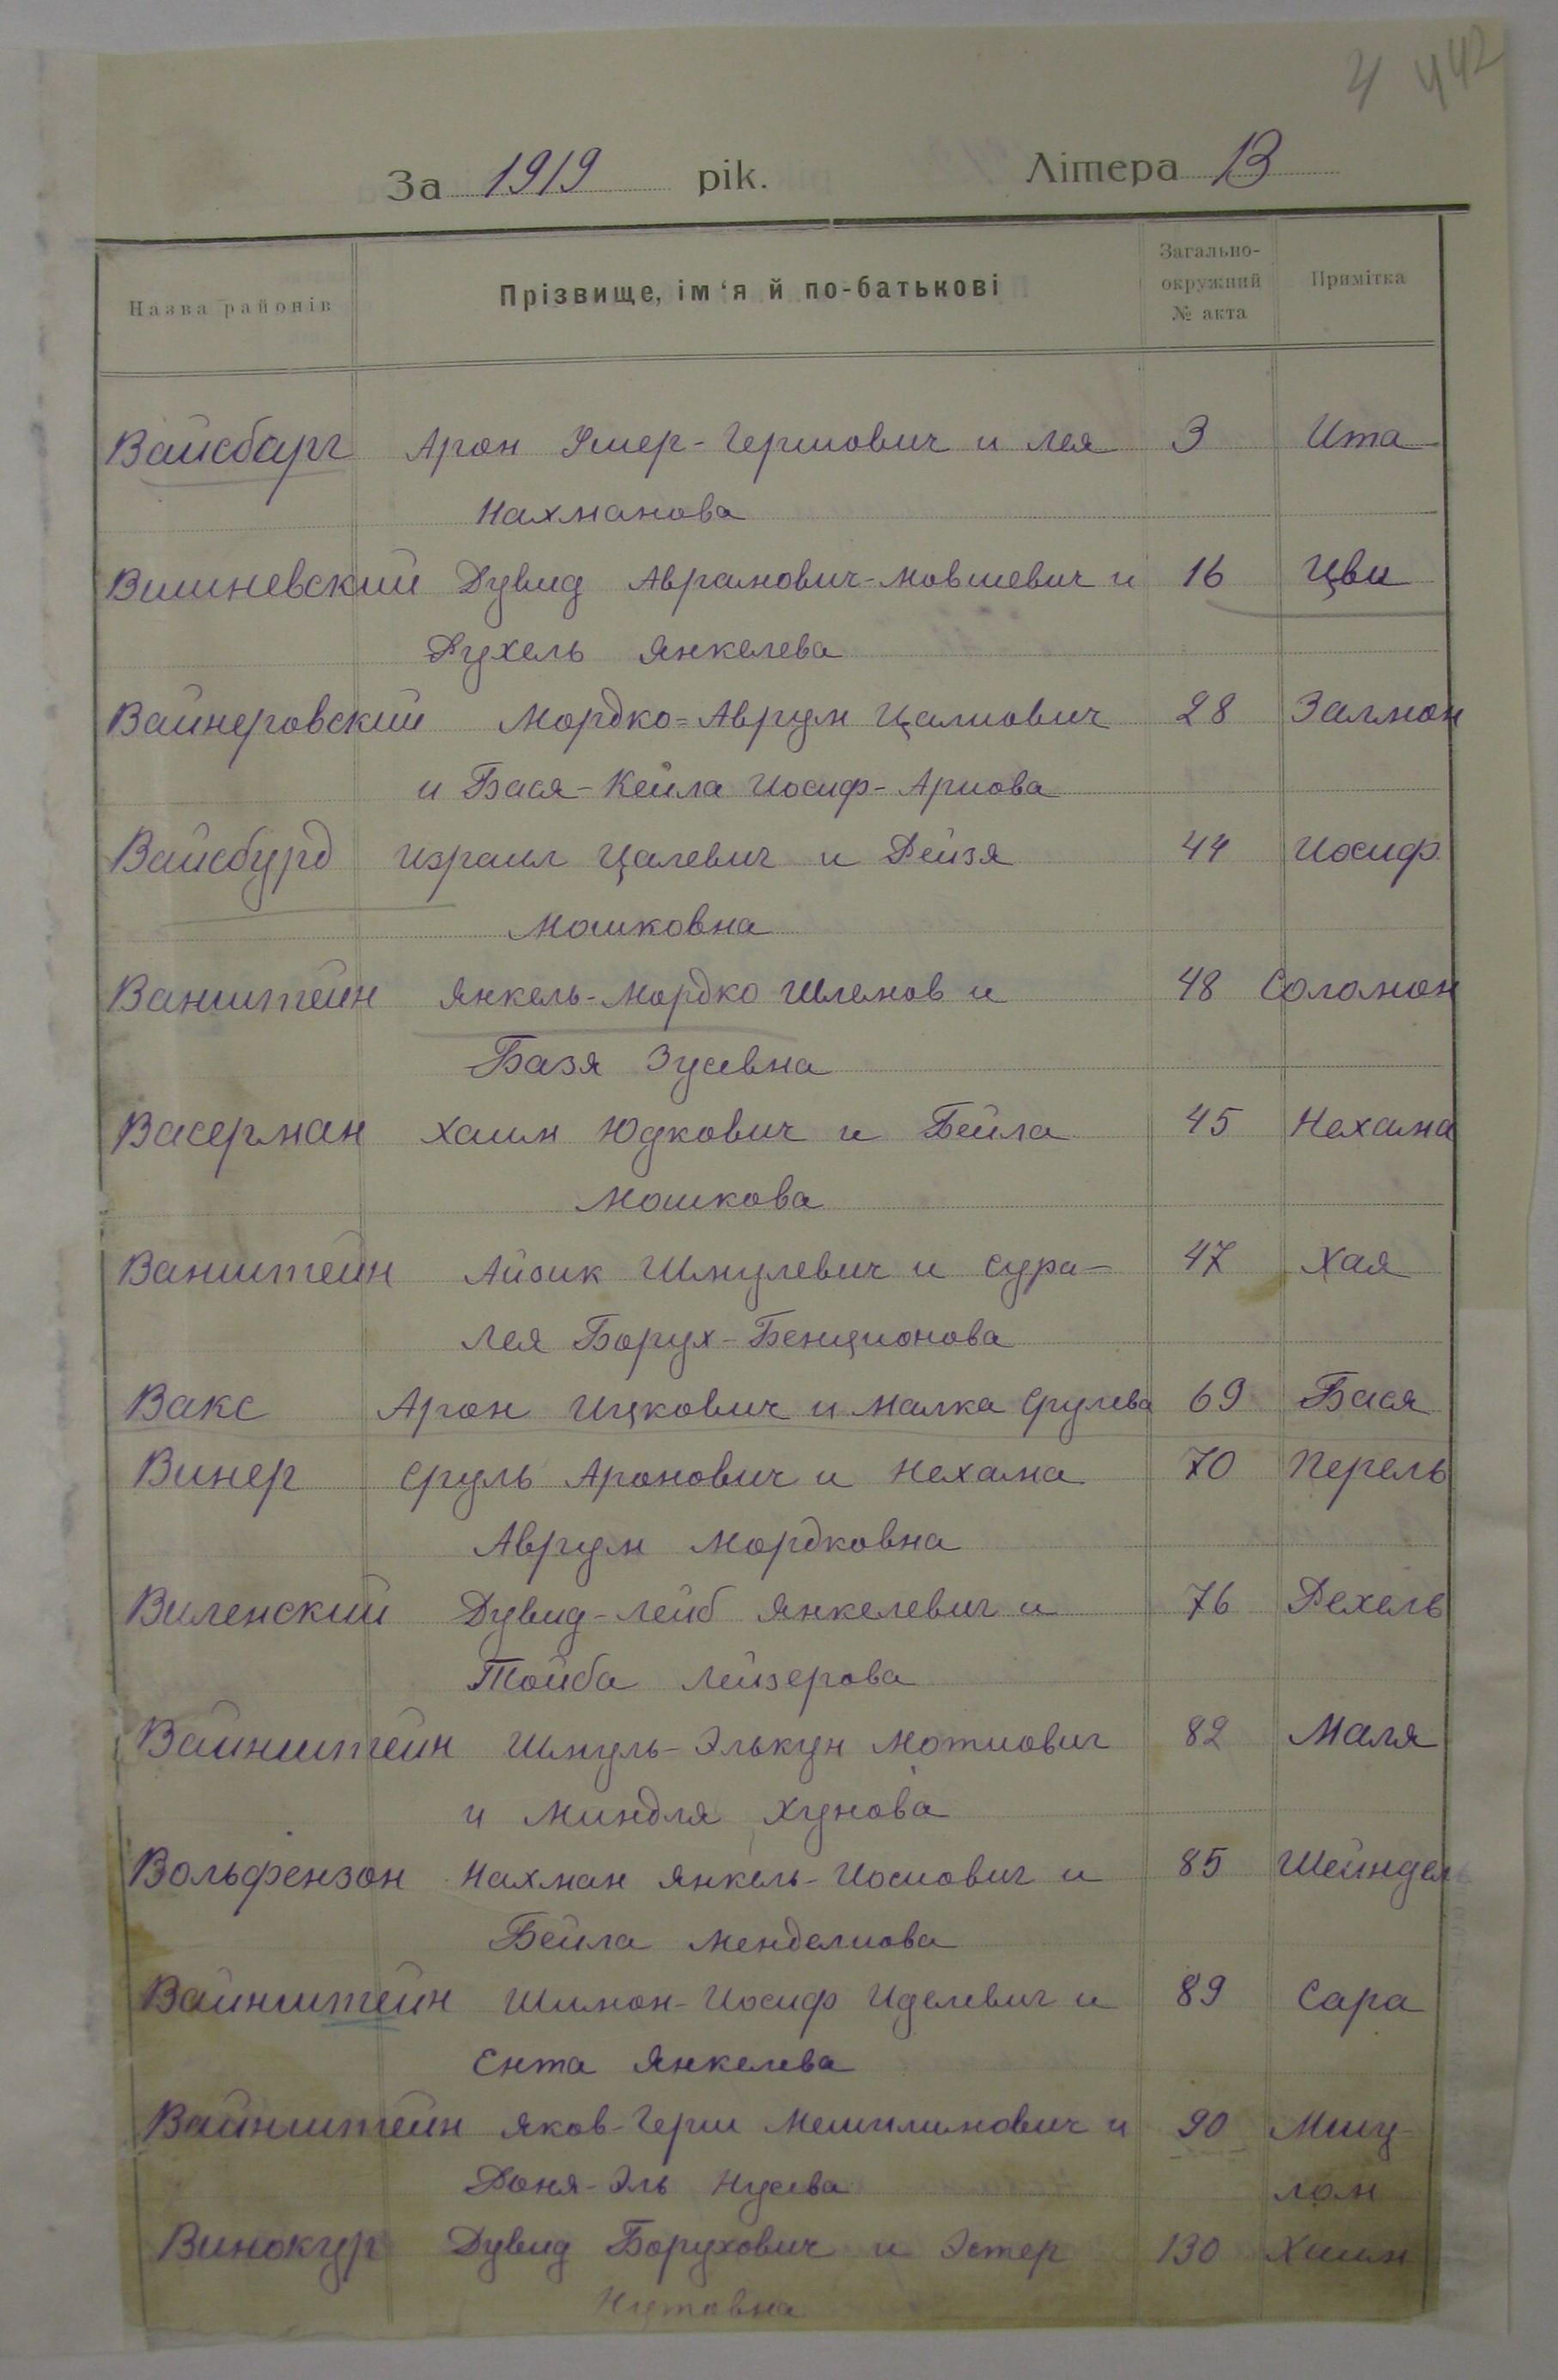 4 442
За 1919 рік. Літера В
Назва районів Прізвище, ім'я й по-батькові Загально-окружний № акта Примітка
Вайсбарг Арон Фишер-Гершович и Лея 3 Ита
Нахманова
Вишневский Дувид Аврамович-Мовшевич и 16 Цви
Рухель Янкелева
Вайнеровский Мордко=Аврум Цалиович 28 Залмон
и Бася-Кейла Иосиф-Ариова
Вайсбурд Израил Цалевич и Рейзя 44 Иосиф
Мошковна
Ванштейн Янкель-Мордко Шлемов и 48 Соломон
Базя Зусевна
Васерман Хаим Юдкович и Бейла 45 Нехама
Мошкова
Ванштейн Айзик Шмулевич и Сура- 47 Хая
Лея Борух-Бенционова
Вакс Арон Ицкович и Малка Срулева 69 Бася
Винер Сруль Аронович и Нехама 70 Перель
Аврум Мордковна
Виленский Дувид-Лейб Янкелевич и 76 Рехель
Тойба Лейзерова
Вайнштейн Шмуль-Элькун Мотиович 82 Маля
и Миндля Хунова
Вольфензон Нахман Янкель-Иосиович и 85 Шейндел
Бейла Менделиова
Вайнштейн Шимон-Иосиф Иделевич и 89 Сара
Ента Янкелева
Вайнштейн Яков-Герш Мешилимович и 90
Роня-Эль Нусева
Винокур Дувид Борухович и Эстер 130 Хаим
Нутовна